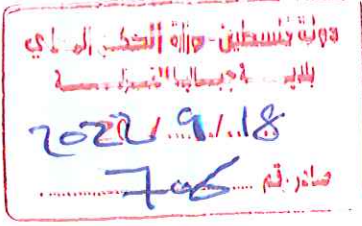 دولة فلسطين - وزارة الحكم المحلي
بلدية جباليا النزلة
2022/9/18
صادر رقم 706